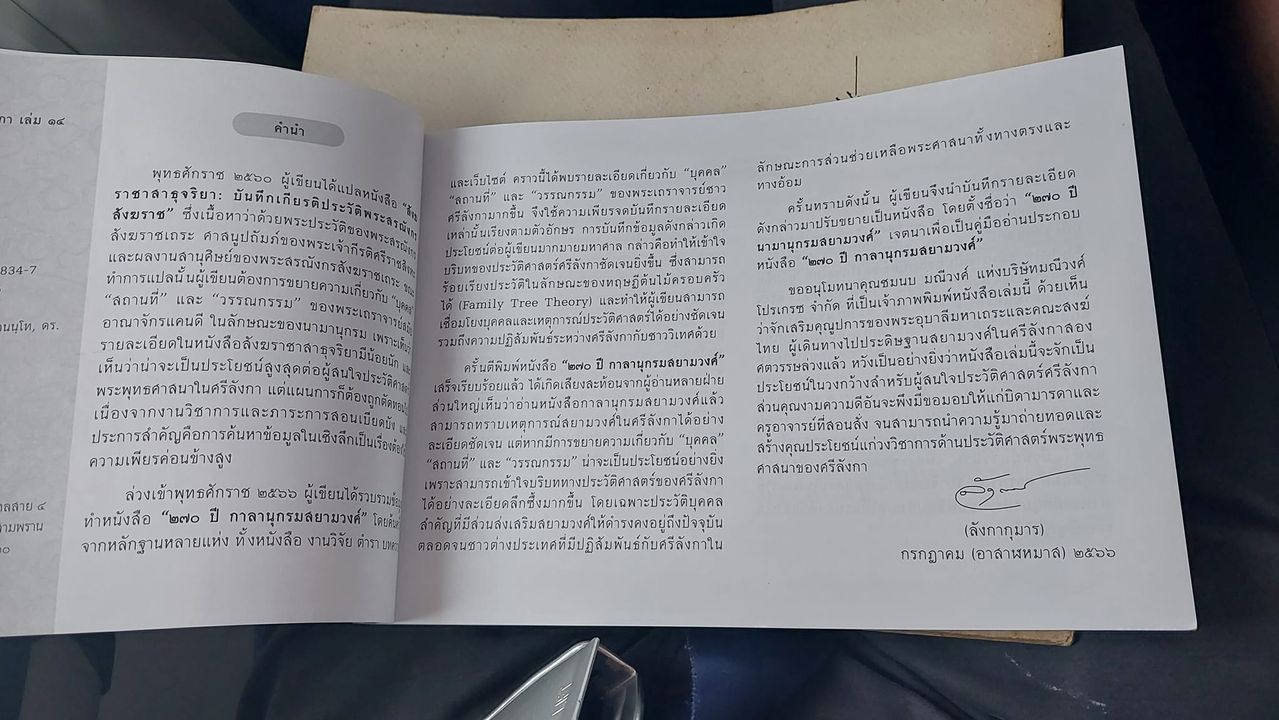 กา เล่ม ๑๔
834-7
วนนฺโท, ดร.
ทลสาย ๔
สามพราน
๐
คำนำ
พุทธศักราช ๒๕๖๐ ผู้เขียนได้แปลหนังสือ “สังฆ
ราชาสาธุจริยา: บันทึกเกียรติประวัติพระสรณังกร
สังฆราช” ซึ่งเนื้อหาว่าด้วยพระประวัติของพระสรณังกร
สังฆราชเถระ ศาสนูปถัมภ์ของพระเจ้ากีรติศรีราชสิงหะ
และผลงานสานุศิษย์ของพระสรณังกรสังฆราชเถระ ขณะ
ทำการแปลนั้นผู้เขียนต้องการขยายความเกี่ยวกับ “บุคคล”
“สถานที่” และ “วรรณกรรม” ของพระเถราจารย์สมัย
อาณาจักรแคนดี ในลักษณะของนามานุกรม เพราะเห็นว่า
รายละเอียดในหนังสือสังฆราชาสาธุจริยามีน้อยนัก และ
เห็นว่าน่าจะเป็นประโยชน์สูงสุดต่อผู้สนใจประวัติศาสตร์
พระพุทธศาสนาในศรีลังกา แต่แผนการก็ต้องถูกตัดทอน
เนื่องจากงานวิชาการและภาระการสอนเบียดบัง และ
ประการสำคัญคือการค้นหาข้อมูลในเชิงลึกเป็นเรื่องต้อง
ความเพียรค่อนข้างสูง
ล่วงเข้าพุทธศักราช ๒๕๖๖ ผู้เขียนได้รวบรวมข้อมูล
ทำหนังสือ “๒๗๐ ปี กาลานุกรมสยามวงศ์” โดยค้นคว้า
จากหลักฐานหลายแห่ง ทั้งหนังสือ งานวิจัย ตำรา บทความ
และเว็บไซต์ คราวนี้ได้พบรายละเอียดเกี่ยวกับ “บุคคล”
“สถานที่” และ “วรรณกรรม” ของพระเถราจารย์ชาว
ศรีลังกามากขึ้น จึงใช้ความเพียรจดบันทึกรายละเอียด
เหล่านั้นเรียงตามตัวอักษร การบันทึกข้อมูลดังกล่าวเกิด
ประโยชน์ต่อผู้เขียนมากมายมหาศาล กล่าวคือทำให้เข้าใจ
บริบทของประวัติศาสตร์ศรีลังกาชัดเจนยิ่งขึ้น ซึ่งสามารถ
ร้อยเรียงประวัติในลักษณะของทฤษฎีต้นไม้ครอบครัว
ได้ (Family Tree Theory) และทำให้ผู้เขียนสามารถ
เชื่อมโยงบุคคลและเหตุการณ์ประวัติศาสตร์ได้อย่างชัดเจน
รวมถึงความปฏิสัมพันธ์ระหว่างศรีลังกากับชาววิเทศด้วย
ครั้นตีพิมพ์หนังสือ “๒๗๐ ปี กาลานุกรมสยามวงศ์”
เสร็จเรียบร้อยแล้ว ได้เกิดเสียงสะท้อนจากผู้อ่านหลายฝ่าย
ส่วนใหญ่เห็นว่าอ่านหนังสือกาลานุกรมสยามวงศ์แล้ว
สามารถทราบเหตุการณ์สยามวงศ์ในศรีลังกาได้อย่าง
ละเอียดชัดเจน แต่หากมีการขยายความเกี่ยวกับ “บุคคล”
“สถานที่” และ “วรรณกรรม” น่าจะเป็นประโยชน์อย่างยิ่ง
เพราะสามารถเข้าใจบริบททางประวัติศาสตร์ของศรีลังกา
ได้อย่างละเอียดลึกซึ้งมากขึ้น โดยเฉพาะประวัติบุคคล
สำคัญที่มีส่วนส่งเสริมสยามวงศ์ให้ดำรงคงอยู่ถึงปัจจุบัน
ตลอดจนชาวต่างประเทศที่มีปฏิสัมพันธ์กับศรีลังกาใน
ลักษณะการส่วนช่วยเหลือพระศาสนาทั้งทางตรงและ
ทางอ้อม
ครั้นทราบดังนั้น ผู้เขียนจึงนำบันทึกรายละเอียด
ดังกล่าวมาปรับขยายเป็นหนังสือ โดยตั้งชื่อว่า “๒๗๐ ปี
นามานุกรมสยามวงศ์” เจตนาเพื่อเป็นคู่มืออ่านประกอบ
หนังสือ “๒๗๐ ปี กาลานุกรมสยามวงศ์”
ขออนุโมทนาคุณชมนบ มณีวงศ์ แห่งบริษัทมณีวงศ์
โปรเกรซ จำกัด ที่เป็นเจ้าภาพพิมพ์หนังสือเล่มนี้ ด้วยเห็น
ว่าจักเสริมคุณูปการของพระอุบาลีมหาเถระและคณะสงฆ์
ไทย ผู้เดินทางไปประดิษฐานสยามวงศ์ในศรีลังกาสอง
ศตวรรษล่วงแล้ว หวังเป็นอย่างยิ่งว่าหนังสือเล่มนี้จะจักเป็น
ประโยชน์ในวงกว้างสำหรับผู้สนใจประวัติศาสตร์ศรีลังกา
ส่วนคุณงามความดีอันจะพึงมีขอมอบให้แก่บิดามารดาและ
ครูอาจารย์ที่สอนสั่ง จนสามารถนำความรู้มาถ่ายทอดและ
สร้างคุณประโยชน์แก่วงวิชาการด้านประวัติศาสตร์พระพุทธ
ศาสนาของศรีลังกา
(ลังกากุมาร)
กรกฎาคม (อาสาฬหมาส) ๒๕๖๖